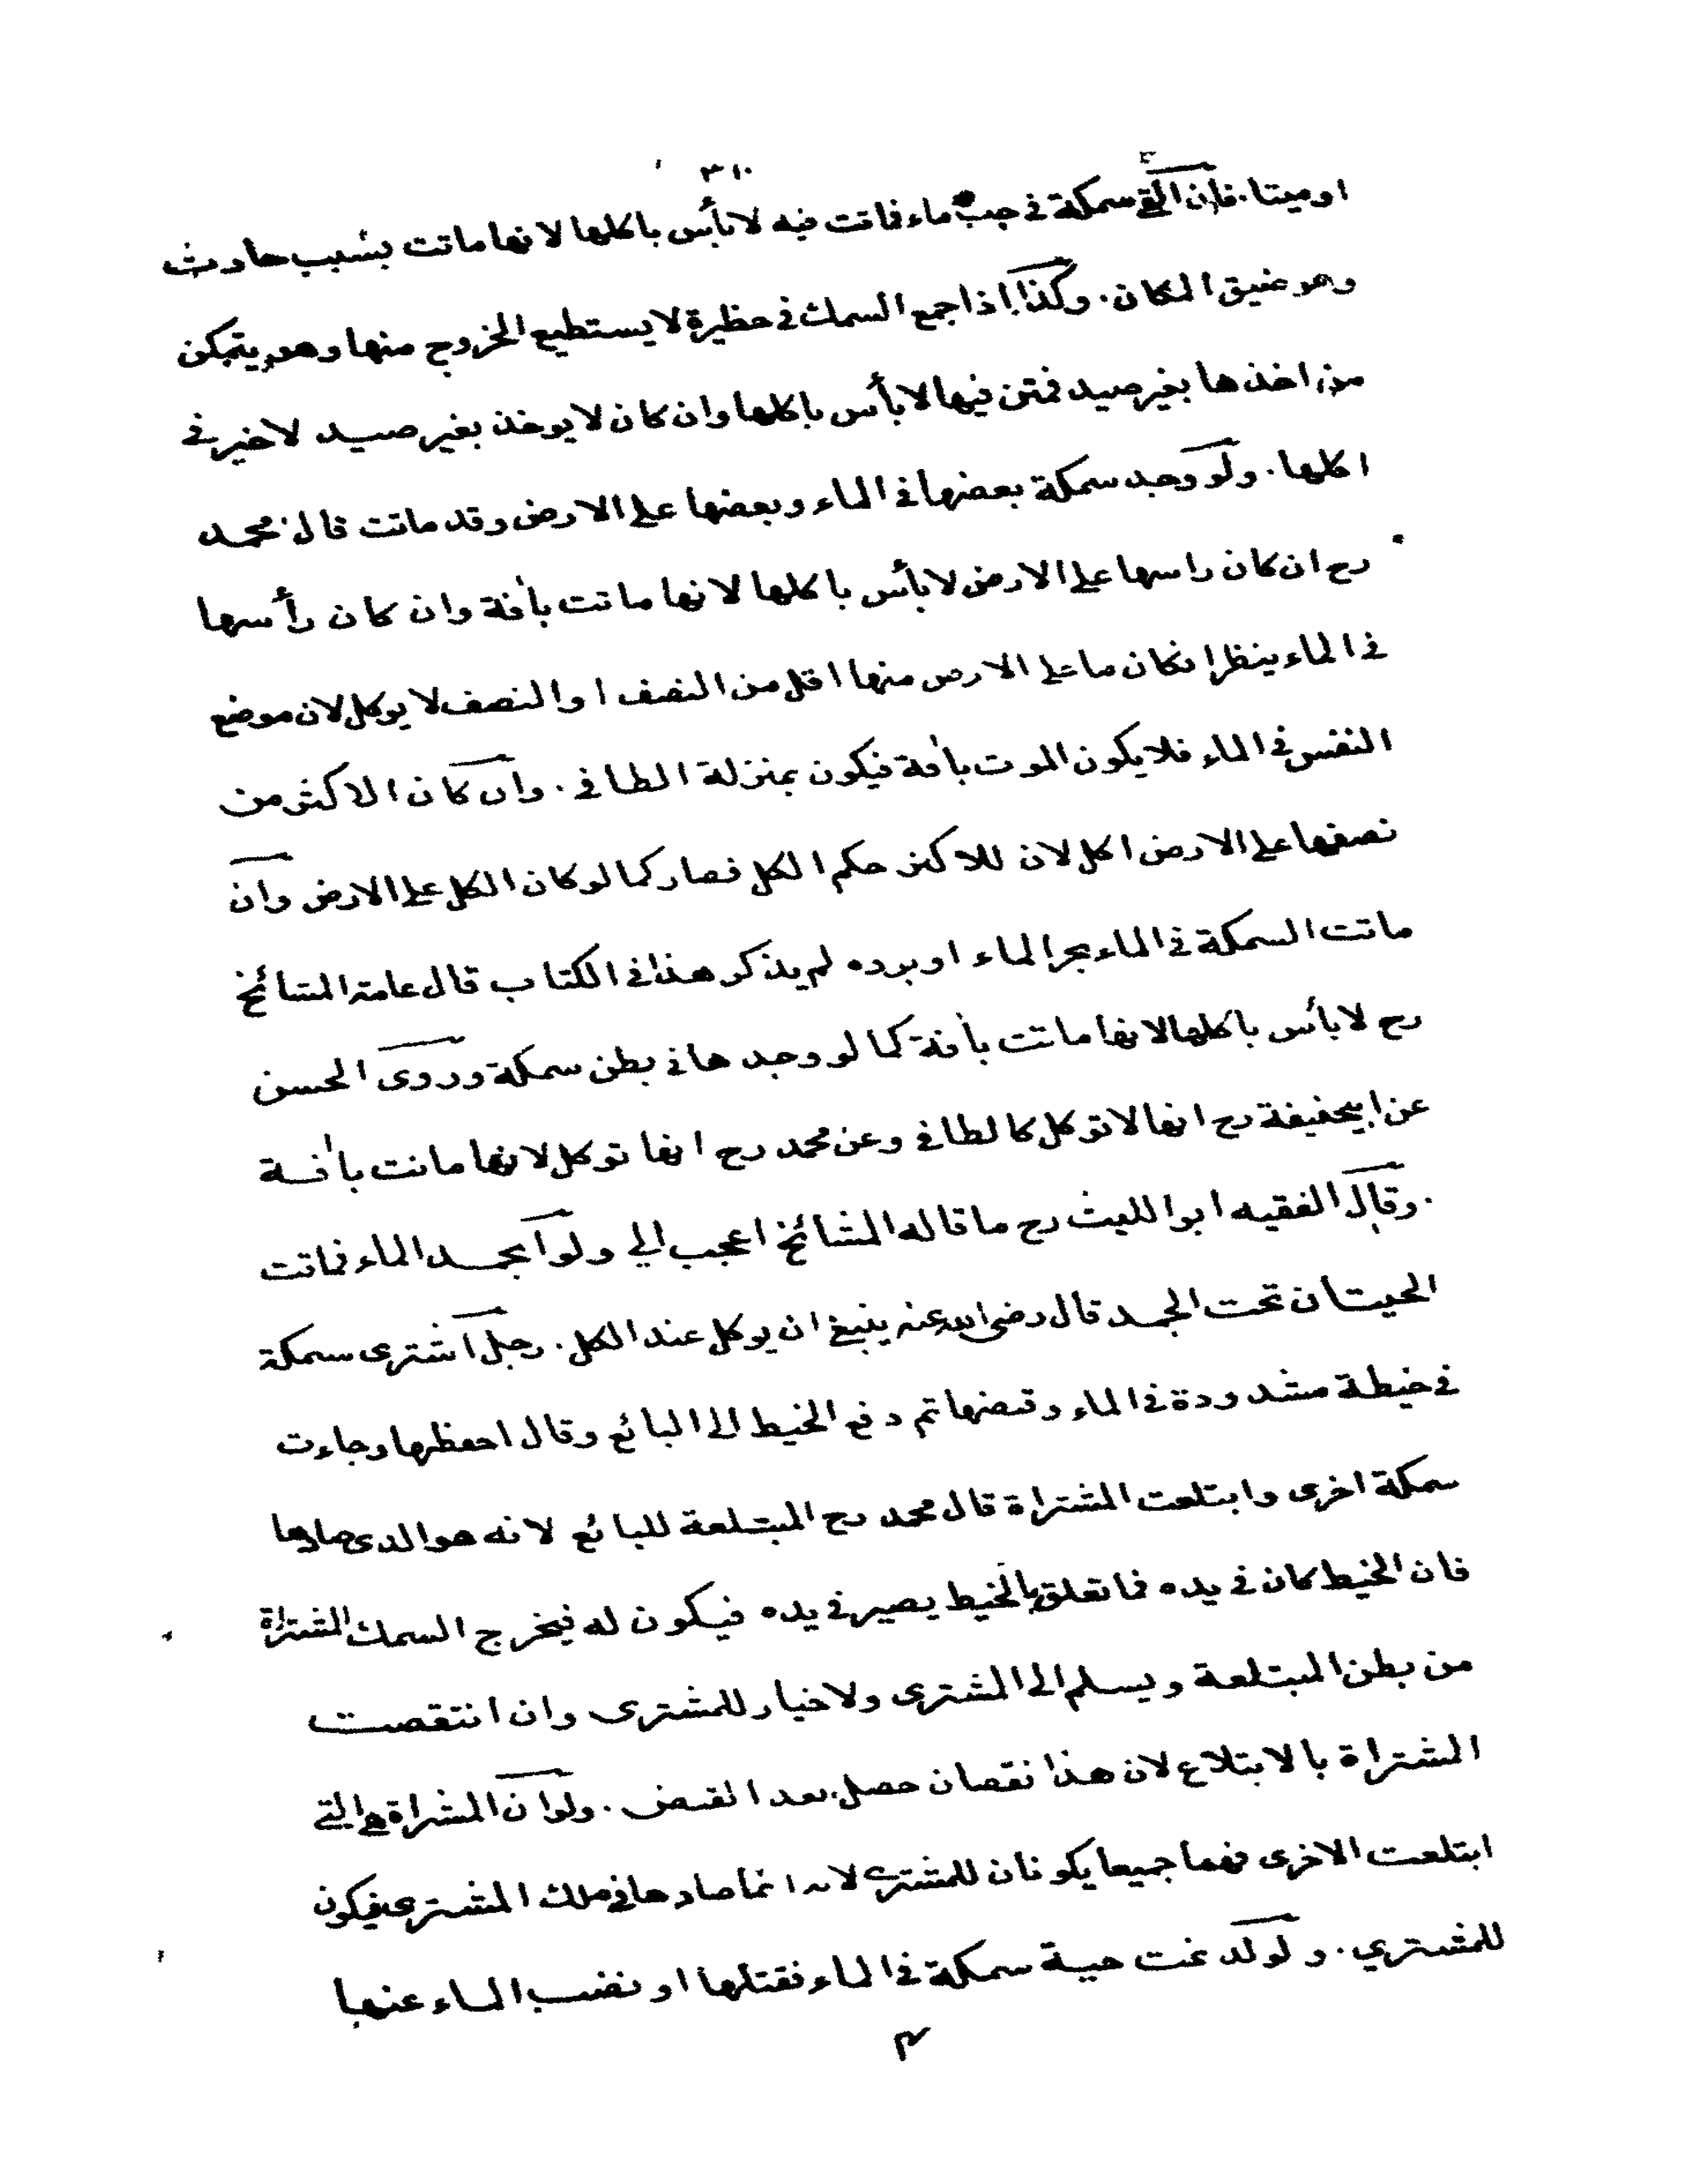 ٣١٠
اوميتا. فان القى سمكة في جب ماء فماتت فيه لا بأس باكلها لا نها ماتت بسبب حادث
وهو ضيق المكان. وكذا اذا جمع السمك في حظيرة لا يستطيع الخروج منها وهو يتمكن
من اخذ ها بغير صيد فمتن فيها لا بأس باكلها وان كان لا يوخذ بغير صيد لا خير في
اكلها. ولو وجد سمكة بعضها في الماء وبعضها على الارض وقد ماتت قال محمد
رح ان كان راسها على الارض لا بأس با كلها لا نها ما تت بأفة وان كان رأسها
في الماء ينظر انكان ما على الارض منها اقل من النصف ا والنصف لا يوكل لان موضع
النفس في الماء فلا يكون الموت بأفة فيكون بمنزلة الطافي. وان كان الاكثر من
نصفها على الارض اكل لان للاكثر حكم الكل فصار كما لو كان الكل على الارض وان
ماتت السمكة في الماء بحر الماء او برده لم يذكر هذا في الكتاب قال عامة المشائخ
رح لا بأس باكلها لا نها ماتت بأفة كما لو وجد ها في بطن سمكة وروى الحسن
عن ابيحنيفة رح انها لا توكل كالطافي وعن محمد رح انها توكل لا نها ماتت بأفة
. وقال الفقيه ابوا الليث رح ما قاله المشائخ اعجب الي ولو انجمد الماء فماتت
الحيتان تحت الجمد قال رضى الله عنه ينبغي ان يوكل عند الكل. رجل اشترى سمكة
في خيطة مشدودة في الماء وقبضها ثم دفع الخيط الى البائع وقال احفظها وجاءت
سمكة اخرى وابتلعت المشتراة قال محمد رح المبتلعة للبائع لانه هو الذى صادها
فان الخيط كان في يده فما تعلق بالخيط يصير في يده فيكون له فيخرج السمك المشتراة
من بطن المبتلعة ويسلم الى المشترى ولا خيار للمشترى وان انتقصت
المشتراة بالابتلاع لان هذا نقصان حصل بعد القبض. ولو ان المشراة هي التي
ابتلعت الاخرى فهما جميعا يكونان للمشترى لانه انما صادها في ملك المشترى فيكون
للمشتري. ولو لدغت حية سمكة في الماء فقتلها او نضب الماء عنها